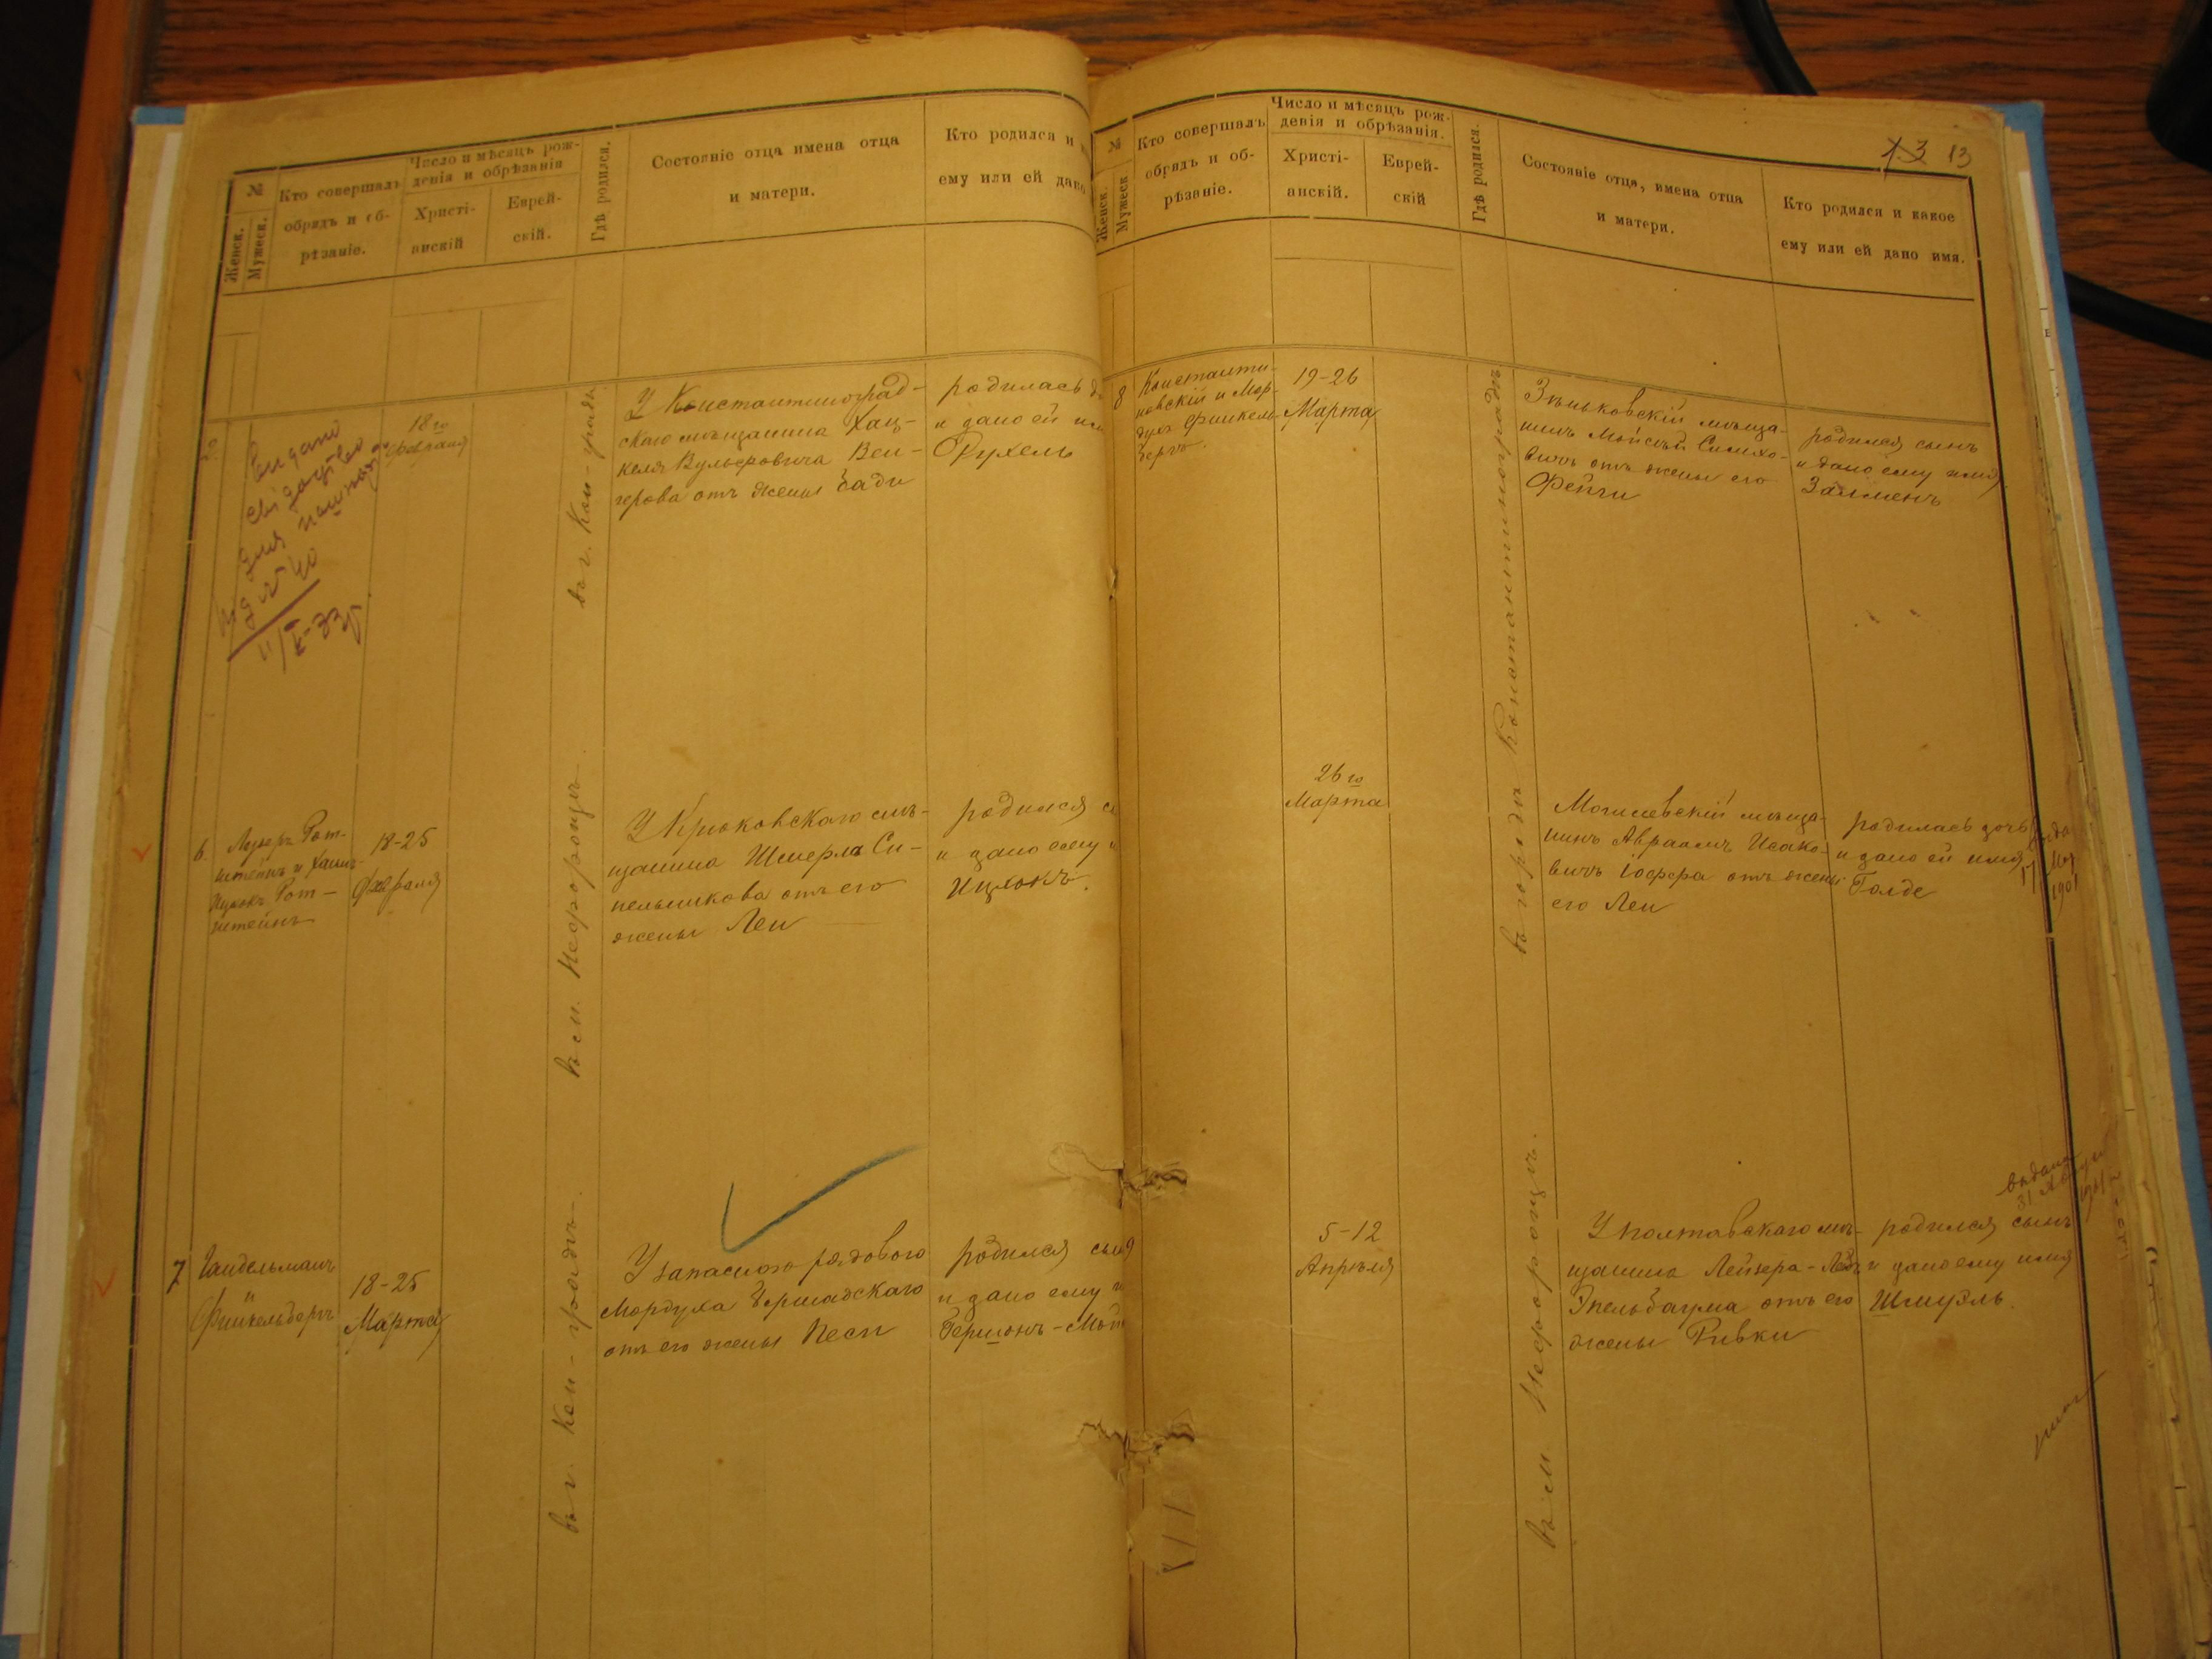 №
Женск.
Мужеск.
Кто совершалъ
обрядъ и об-
рѣзаніе.
Число и мѣсяцъ рож-
денія и обрѣзанія
Христі-
анскій
Еврей-
скій.
Гдѣ родился.
Состояніе отца имена отца
и матери.
Кто родился и
ему или ей дано
18го
февраля
въ г. Кон-градѣ
У Константиноград-
скаго мѣщанина Хац-
келя Вульфовича Вен-
герова отъ жены Бади
родилась
и дано ей
Рухель
6.
Рот-
штейнъ и Хаимъ-
Ицхокъ Рот-
штейнъ
18-25
Февраля
въ м. Нефорощѣ
У Крюковскаго мѣ-
щанина Шмерла Си-
пельникова отъ его
жены Леи
родился
и дано ему
Ицхокъ.
7
Гандельманъ
Финкельбергъ
18-25
Марта
въ г. Кон-градѣ
У запаснаго рядового
Мордуха Бершадскаго
отъ его жены Песи
родился сынъ
и дано ему
Гершонъ-
№
Женск.
Мужеск
Кто совершалъ
обрядъ и об-
рѣзаніе.
Число и мѣсяцъ рож-
денія и обрѣзанія.
Христі-
анскій.
Еврей-
скій
Гдѣ родился.
Состояніе отца, имена отца
и матери.
Кто родился и какое
ему или ей дано имя.
13 13
8
Константи-
новскій и Мор-
духъ Финкель-
бергъ.
19-26
Марта
въ городѣ Константиноградѣ
Зѣньковскій мѣща-
нинъ Мойсѣй Симхо-
вичъ отъ жены его
Фейги
родился сынъ
и дано ему имя
Залменъ
26го
Марта
Могилевскій мѣща-
нинъ Авраамъ Исако-
вичъ Іоффа отъ жены
его Леи
родилась дочь
и дано ей имя
Голде
17
1901
5-12
Апрѣля
въ м Нефорощѣ.
У полтавскаго мѣ-
щанина Лейзера-
Эпельбаума отъ его
жены Ривки
родился сынъ
и дано ему имя
Шмуэль.
выдана
31